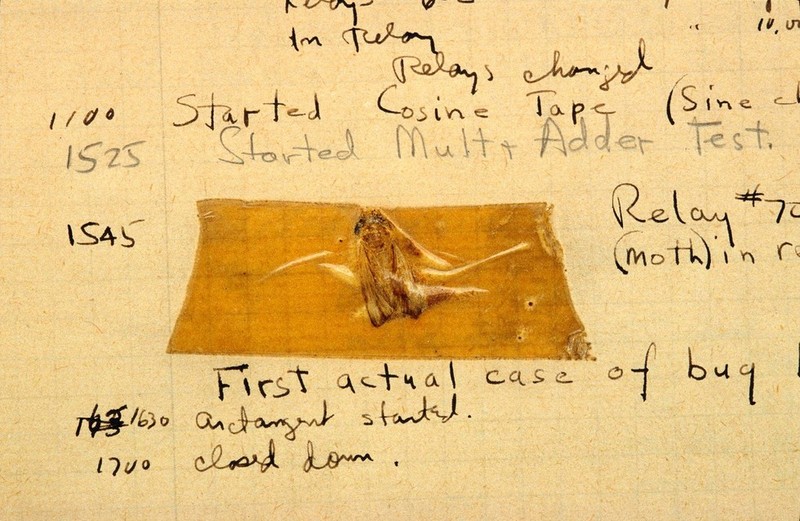 Relays
In Relay
10,00
Relays changed
1100 Started Cosine Tape (Sine ch
1525 Started Mult + Adder Test.
1545 Relay #70
(moth) in re
First actual case of bug
1630 arctangent started.
1700 closed down.